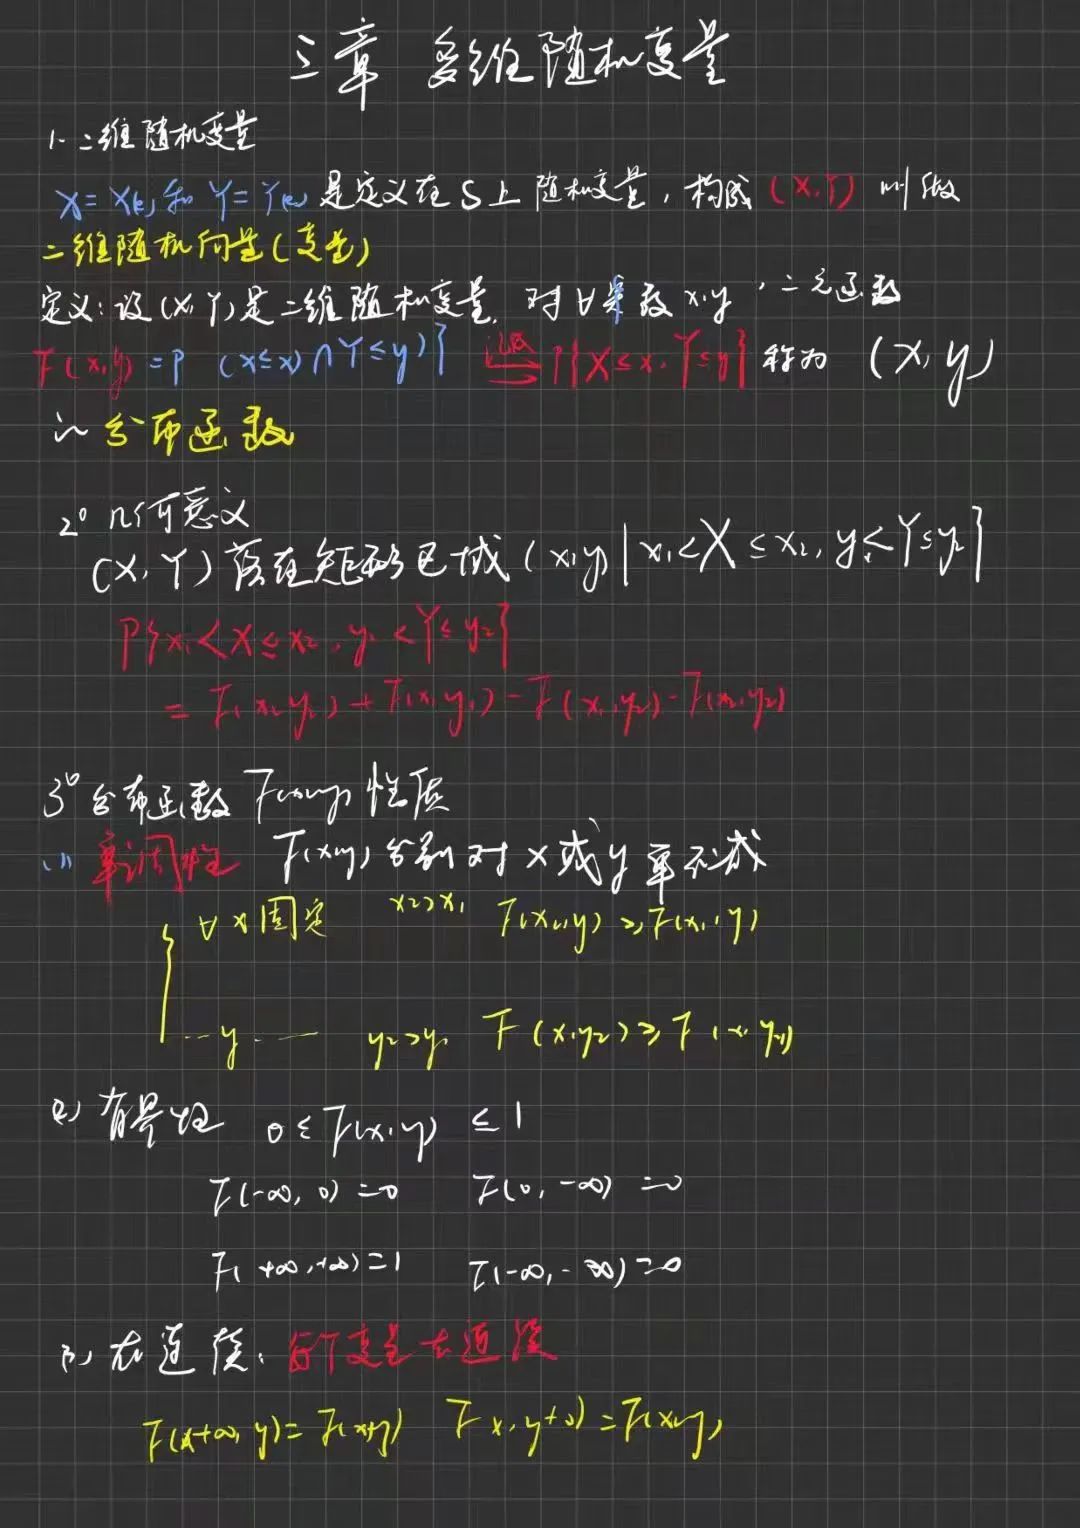 三章 多维随机变量
1. 二维随机变量
X=X(e)和Y=Y(e)是定义在S上随机变量,构成(X,Y)叫做
二维随机向量(变量)
定义:设(X,Y)是二维随机变量,对∀实数x,y,二元函数
F(x,y)=P (X≤x)∩Y≤y)} 记成 P{X≤x,Y≤y} 称为 (X,y)
分布函数
2° 几何意义
(X,Y)落在矩形区域(x,y)|x₁<X≤x₂,y₁<Y≤y₂}
P{x₁<X≤x₂,y₁<Y≤y₂}
=F(x₂,y₂)+F(x₁,y₁)-F(x₁,y₂)-F(x₂,y₂)
3° 分布函数F(x,y)性质
(1) 单调性 F(x,y)分别对x或y单不减
∀x固定 x₂>x₁ F(x₂,y)≥F(x₁,y)
...y.— y₂>y₁ F(x,y₂)≥F(x,y₁)
(2) 有界性 0≤F(x,y)≤1
F(-∞,0)=0 F(0,-∞)=0
F(+∞,+∞)=1 F(-∞,-∞)=0
(3) 右连续: 每个变量右连续
F(x+∞,y)=F(x,y) F x,y+0)=F(x,y)